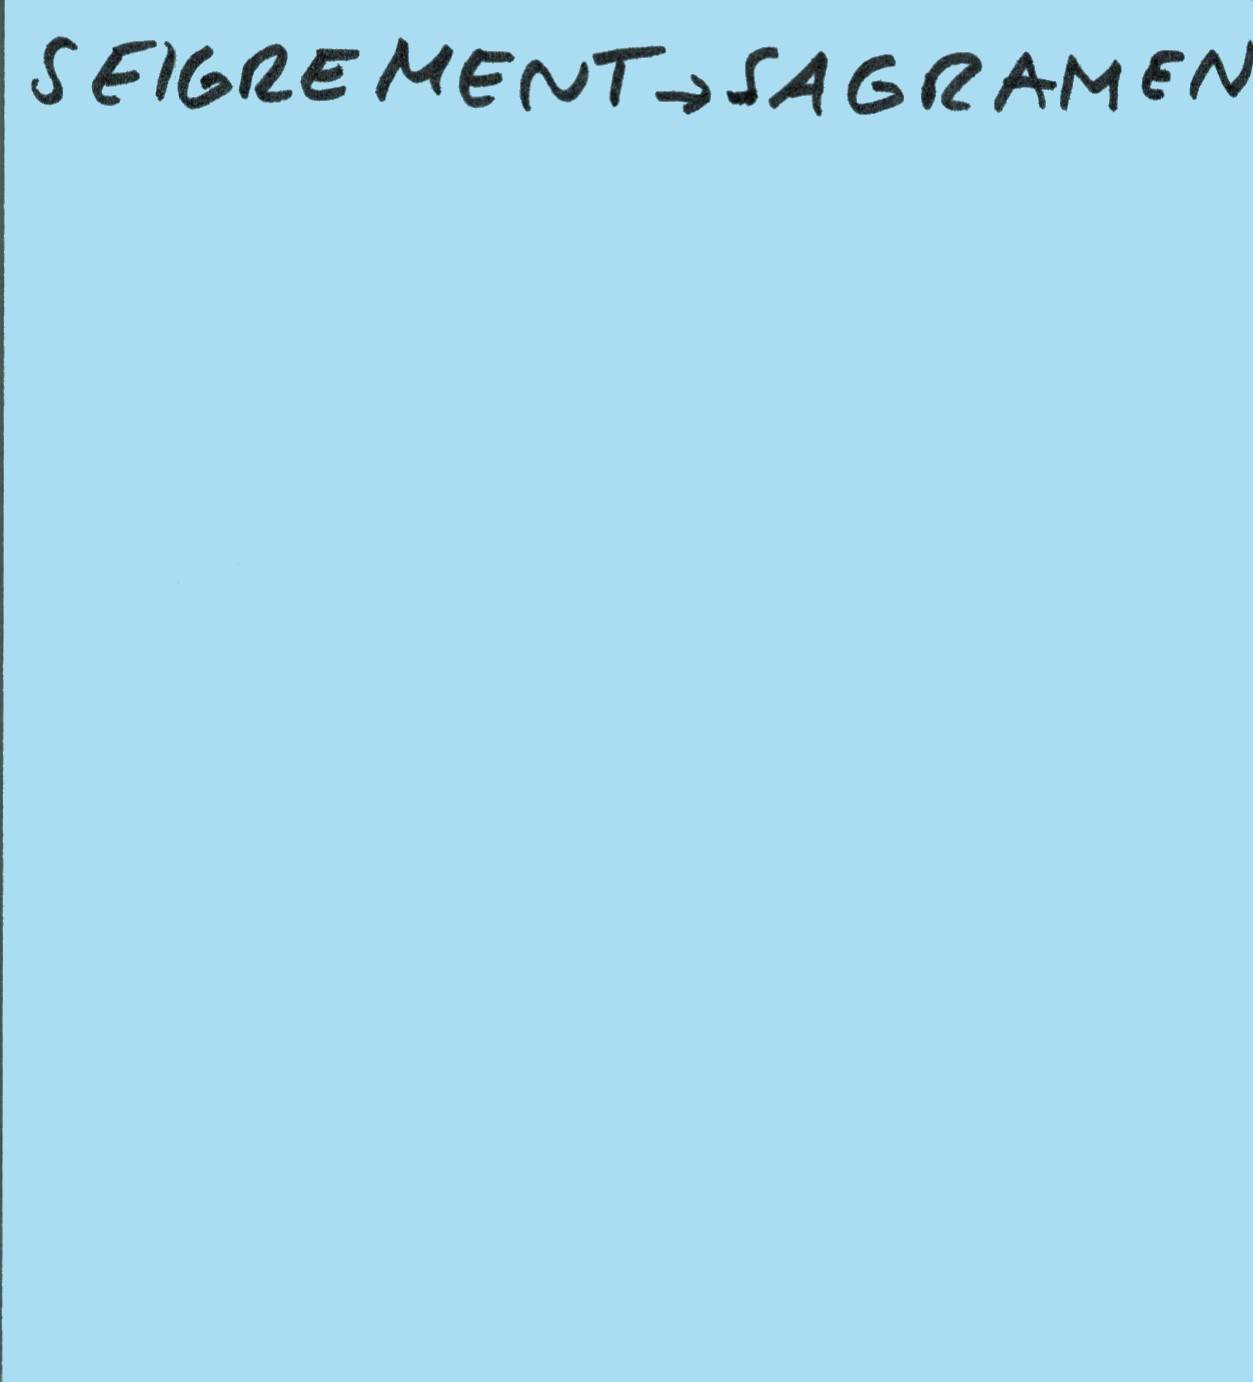 SEIGREMENT→SAGRAMEN